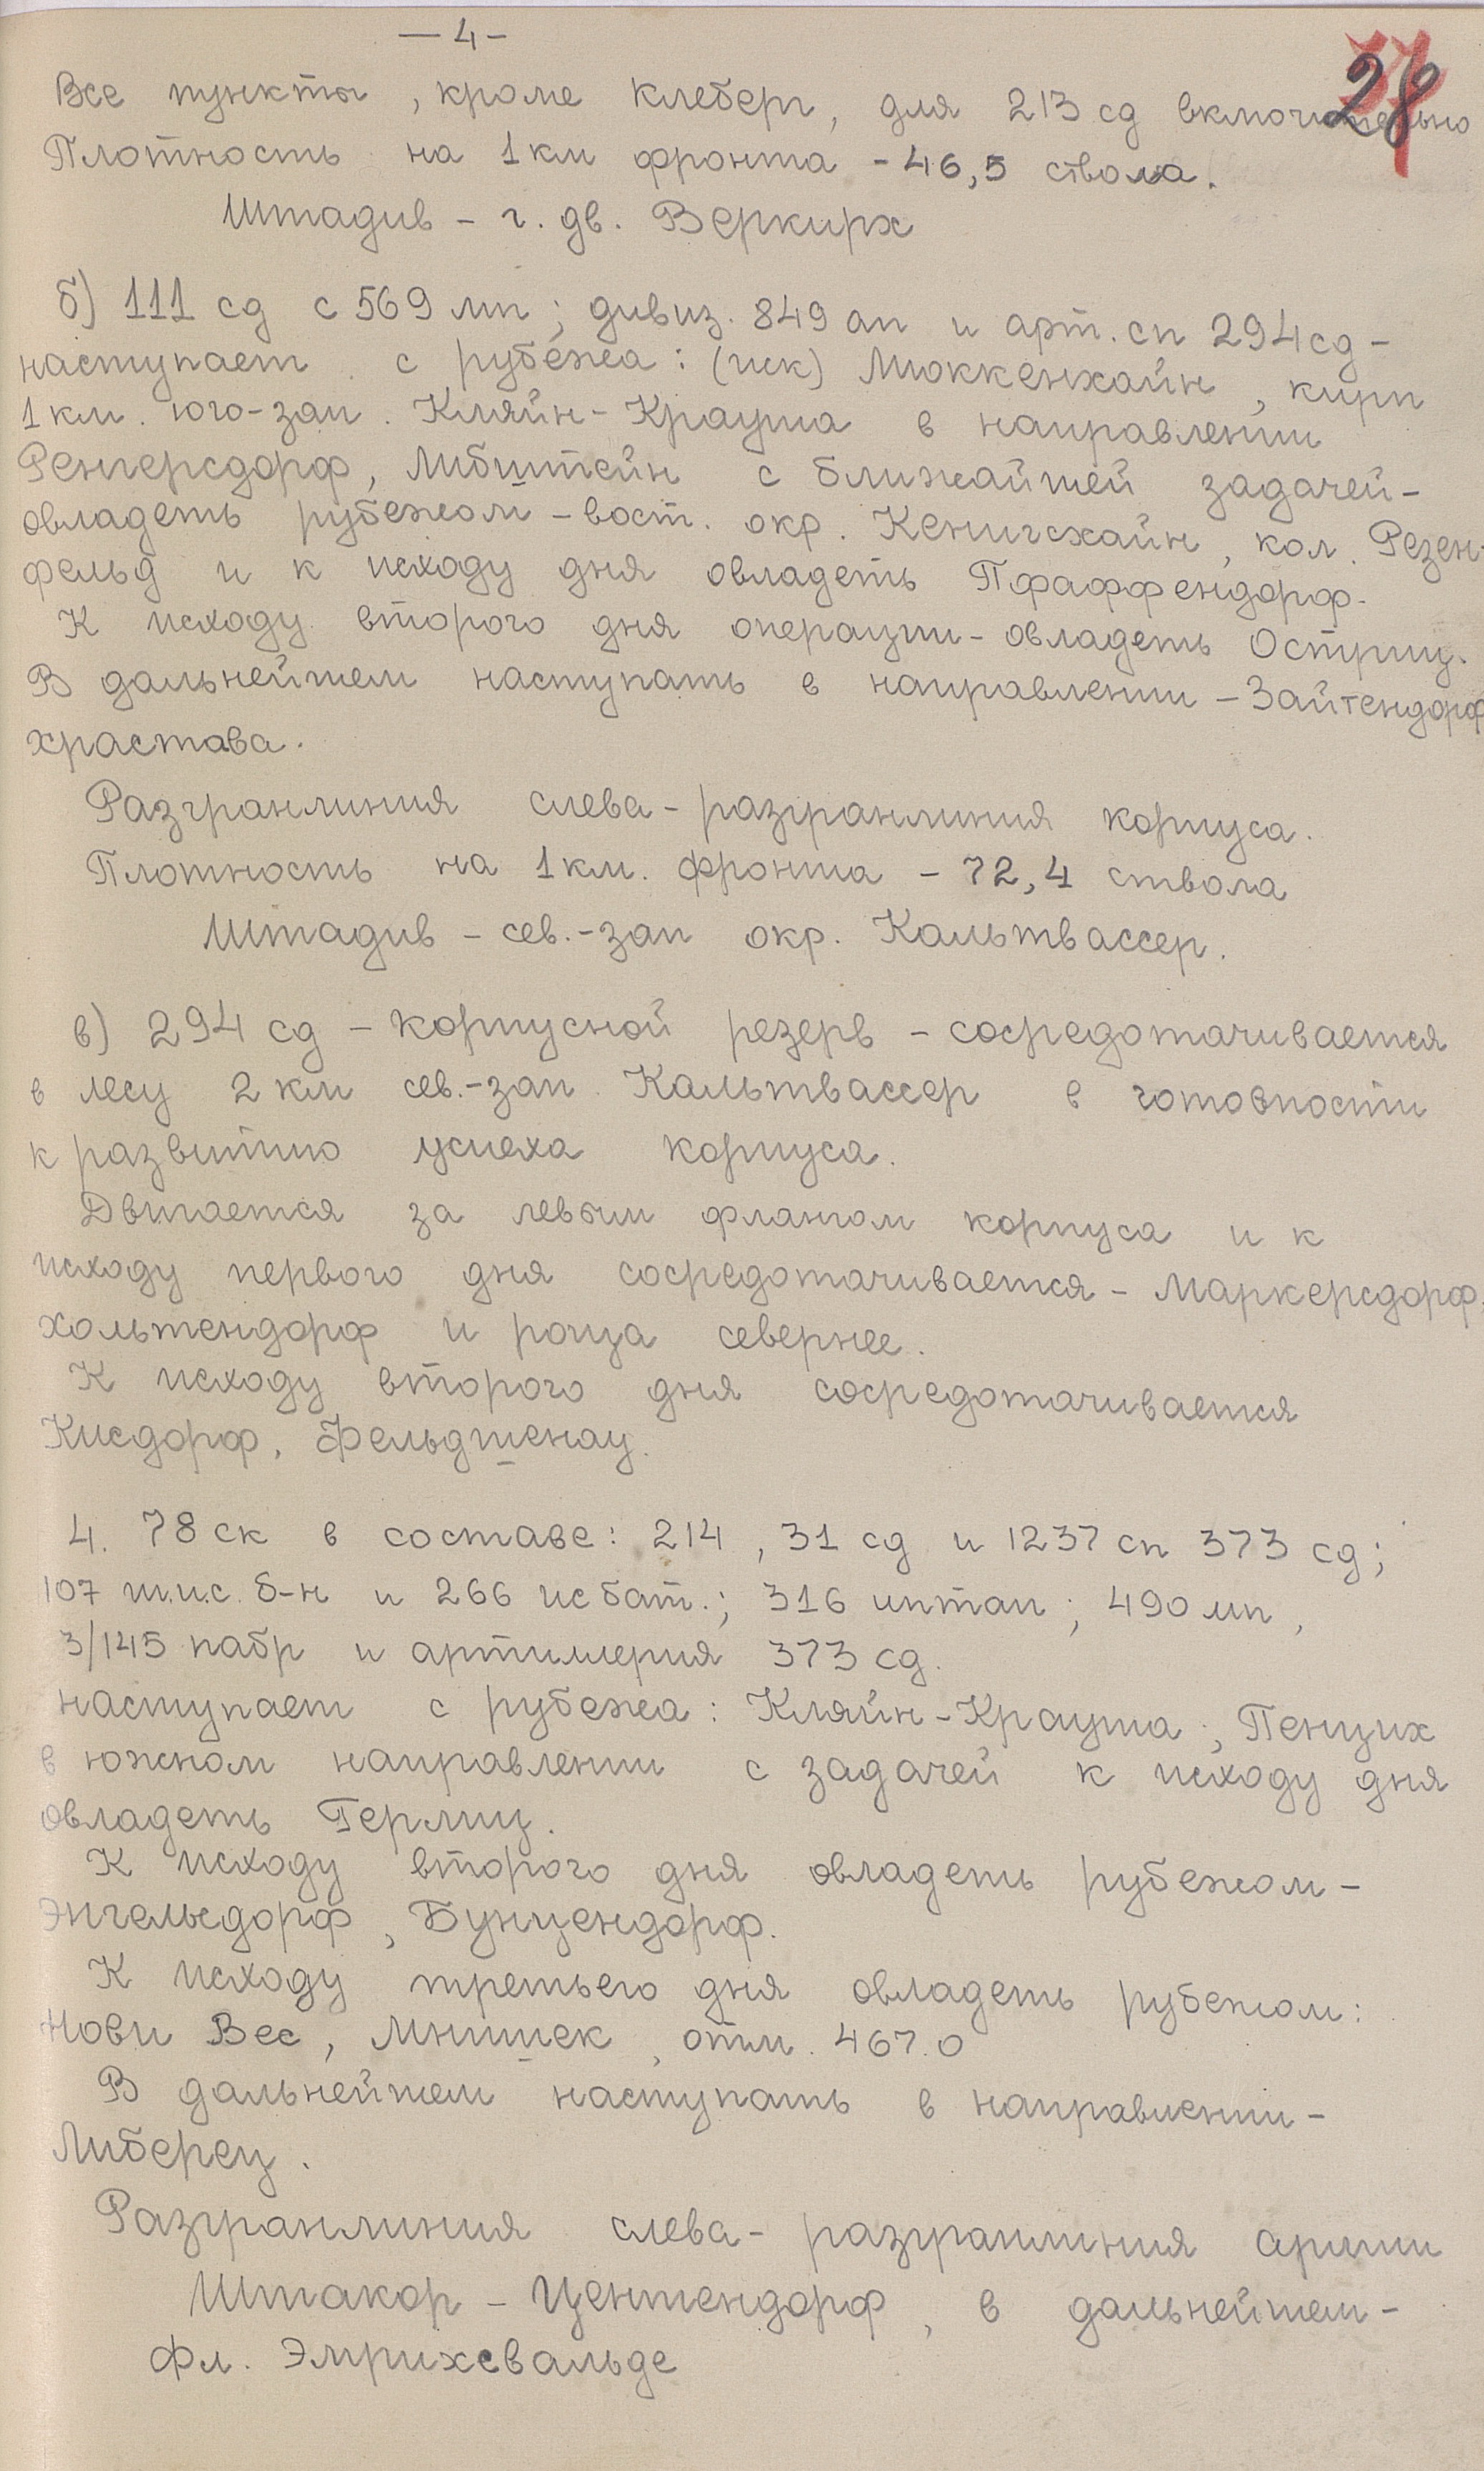 — 4 -
28
Все пункты, кроме Клеберг, для 213 сд включительно
Плотность на 1 км фронта - 46,5 ствола.
Штадив - г. дв. Веркирх
б) 111 сд с 569 мп; дивиз. 849 ап и арт. сп 294 сд -
наступает с рубежа: (иск) Мюккенхайн, кирп
1 км. юго-зап. Кляйн-Крауша в направлении
Ренгерсдорф, Либштейн с ближайшей задачей -
овладеть рубежом - вост. окр. Кенигсхайн, кол. Розен-
фельд и к исходу дня овладеть Пфаффендорф.
К исходу второго дня операции - овладеть Остриц.
В дальнейшем наступать в направлении - Зайтендорф
Храстава.
Разгранлиния слева - разгранлиния корпуса.
Плотность на 1 км. фронта - 72,4 ствола
Штадив - сев.-зап окр. Кальтвассер.
в) 294 сд - корпусной резерв - сосредотачивается
в лесу 2 км сев.-зап. Кальтвассер в готовности
к развитию успеха корпуса.
Двигается за левым флангом корпуса и к
исходу первого дня сосредотачивается - Маркерсдорф,
Хольтендорф и роща севернее.
К исходу второго дня сосредотачивается
Кисдорф, Фельдшенау.
4. 78 ск в составе: 214, 31 сд и 1237 сп 373 сд;
107 ш.и.с. б-н и 266 исбат.; 316 иптап; 490 мп,
3/145 пабр и артиллерия 373 сд.
наступает с рубежа: Кляйн-Крауша, Пенцих
в южном направлении с задачей к исходу дня
овладеть Герлиц.
К исходу второго дня овладеть рубежом -
Энгельсдорф, Бунцендорф.
К исходу третьего дня овладеть рубежом:
Нови Вес, Мнишек, отм. 467.0
В дальнейшем наступать в направлении -
Либерец.
Разгранлиния слева - разгранлиния армии
Штакор - Центендорф, в дальнейшем -
Фл. Эмрихсвальде